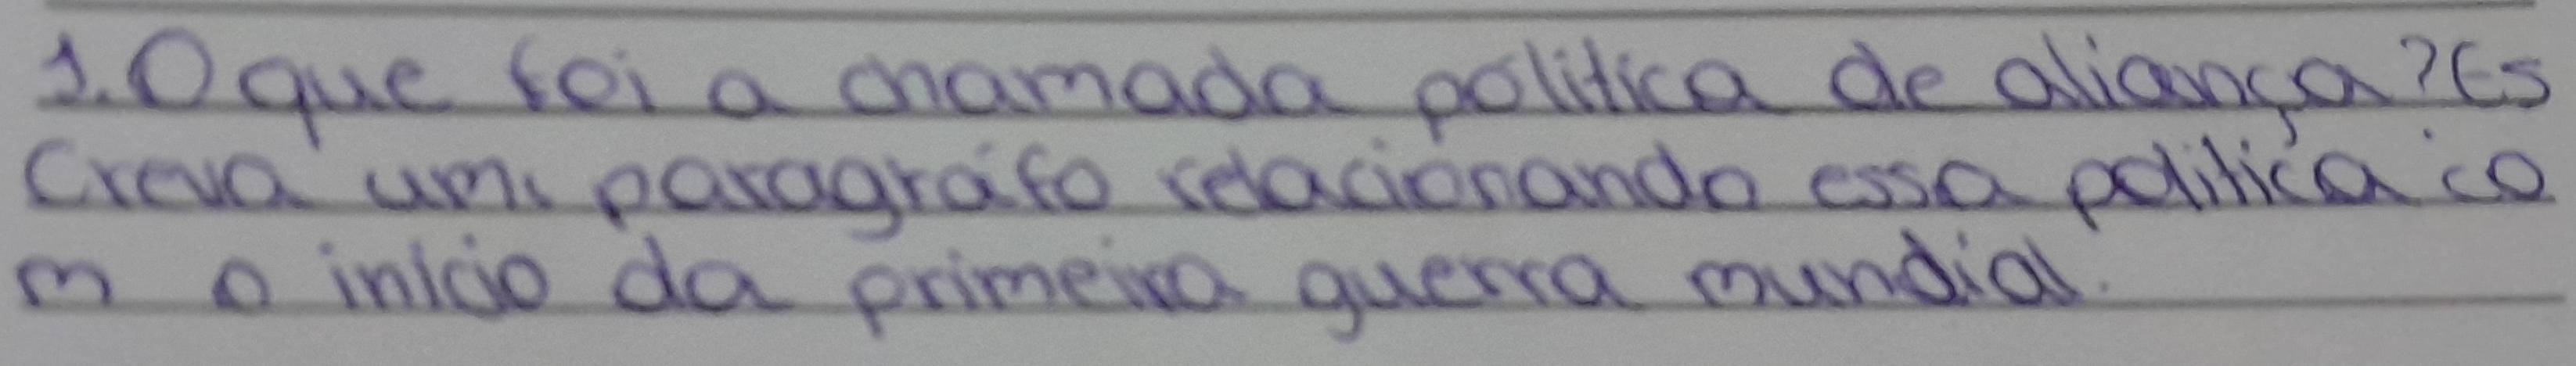 1. O que foi a chamada política de aliança? Es
creva um paragráfo relacionando essa política co
m o início da primeira guerra mundial.